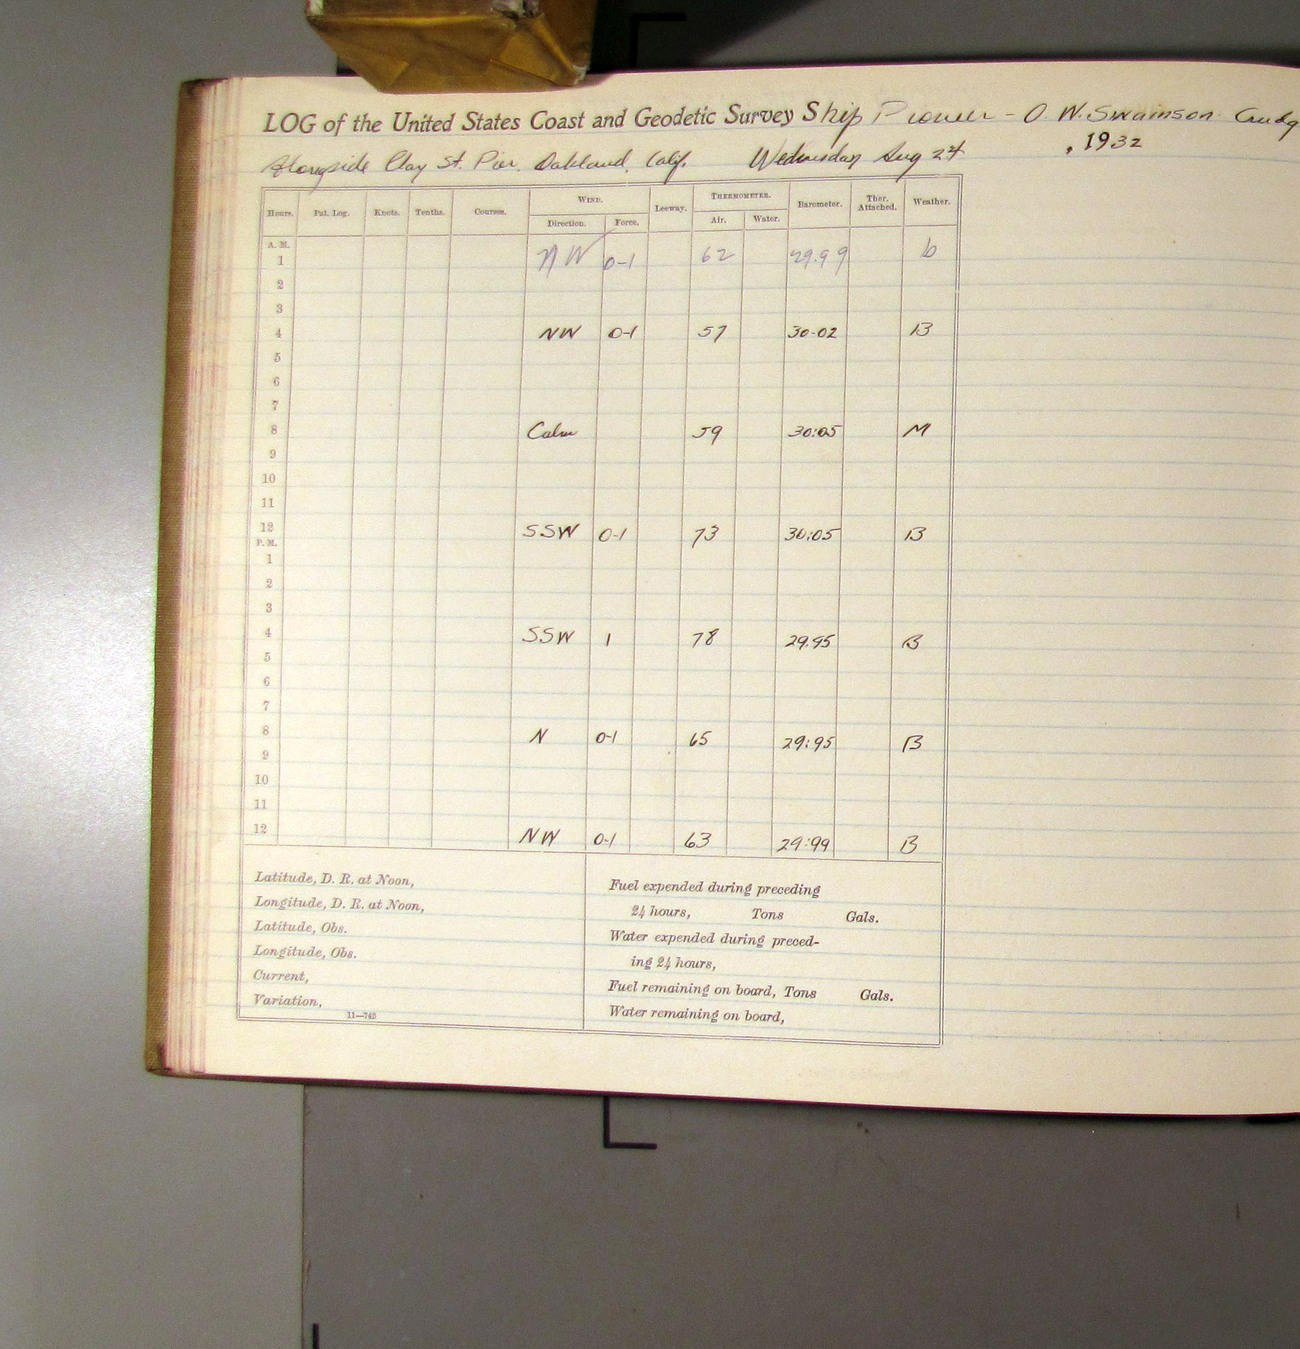 LOG of the United States Coast and Geodetic Survey Ship Pioneer - O. W. Swainson Cmdg
Alongside Clay St. Pier. Oakland, Calif. Wednesday Aug 24, 1932
Hours. Pat. Log. Knots. Tenths. Courses. WIND. Leeway. THERMOMETER. Barometer. Ther. Attached. Weather.
Direction. Force. Air. Water.
A. M.
1 NW 0-1 62 29.99 b
2
3
4 NW 0-1 57 30-02 B
5
6
7
8 Calm 59 30:05 M
9
10
11
12 SSW 0-1 73 30:05 B
P. M.
1
2
3
4 SSW 1 78 29.95 B
5
6
7
8 N 0-1 65 29:95 B
9
10
11
12 NW 0-1 63 29:99 B
Latitude, D. R. at Noon,
Longitude, D. R. at Noon,
Latitude, Obs.
Longitude, Obs.
Current,
Variation,
11—745
Fuel expended during preceding
24 hours, Tons Gals.
Water expended during preced-
ing 24 hours,
Fuel remaining on board, Tons Gals.
Water remaining on board,